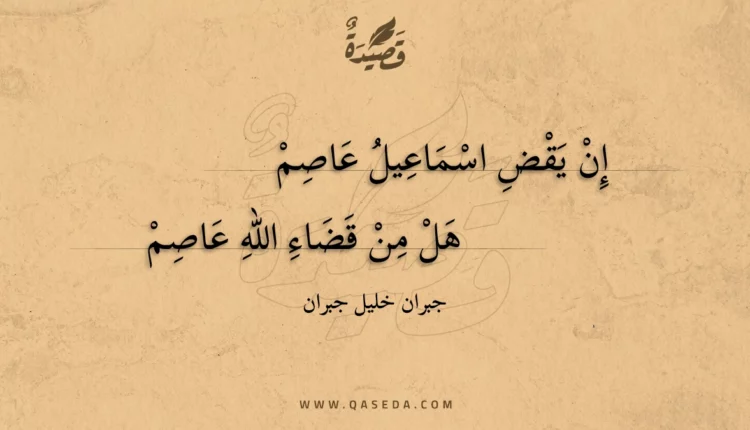 قَصِيدَةٌ
إِنْ يَقْضِ اسْمَاعِيلُ عَاصِمْ
هَلْ مِنْ قَضَاءِ اللهِ عَاصِمْ
جبران خليل جبران
WWW.QASEDA.COM